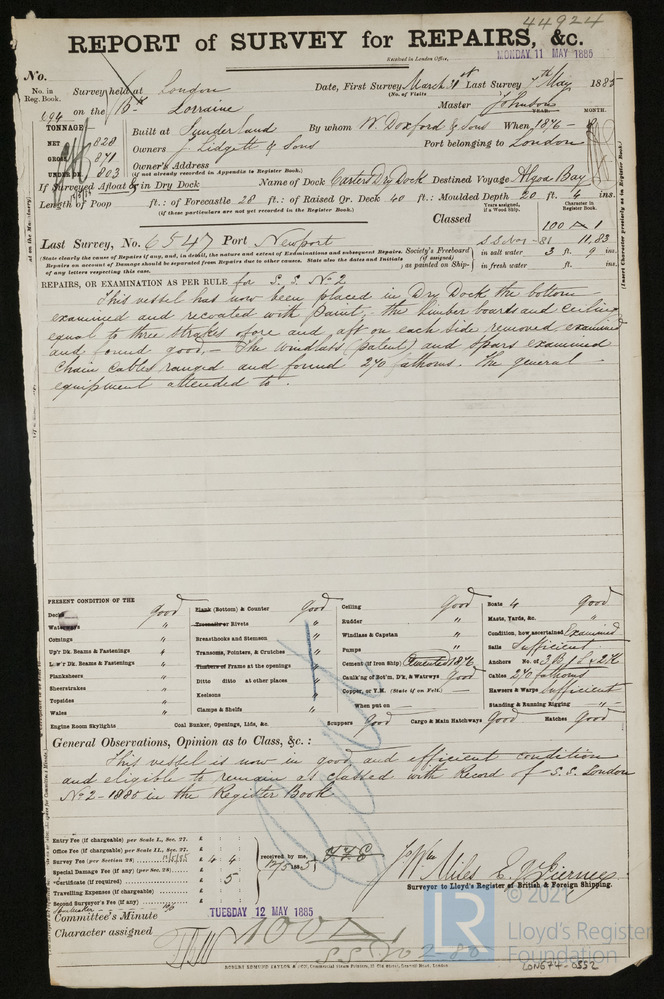 44924
REPORT of SURVEY for REPAIRS, &c.
Received in London Office,
MONDAY 11 MAY 1885
No.
No. in Reg. Book.
Survey held at London Date, First Survey March 31st Last Survey 7th May 1885
(No. of Visits
694 on the Lorraine Master Johnson
TONNAGE
NET 828
GROSS 871
UNDER DK. 803
Built at Sunderland By whom W. Doxford & Sons When 1876
YEAR. MONTH.
Owners J. Lidgett & Sons Port belonging to London
Owner's Address
(if not already recorded in Appendix to Register Book.)
If Surveyed Afloat or in Dry Dock Name of Dock Carters Dry Dock Destined Voyage Algoa Bay
Length of Poop ft.: of Forecastle 28 ft.: of Raised Qr. Deck 40 ft.: Moulded Depth 20 ft. 4 ins.
(if these particulars are not yet recorded in the Register Book.)
Years assigned, if a Wood Ship.
Character in Register Book.
Classed 100 A 1
Last Survey, No. 6547 Port Newport
S.S. No 1 - 81 11,83
(State clearly the cause of Repairs if any, and, in detail, the nature and extent of Examinations and subsequent Repairs.
Repairs on account of Damage should be separated from Repairs due to other causes. State also the dates and Initials
of any letters respecting this case.
Society's Freeboard (if assigned) as painted on Ship-
in salt water 3 ft. 9 ins.
in fresh water ft. ins.
REPAIRS, OR EXAMINATION AS PER RULE for S.S. No 2
This vessel has now been placed in Dry Dock the bottom
examined and recoated with paint, the limber boards and ceiling
equal to three strakes fore and aft on each side removed, examined
and found good. - The windlass (patent) and spars examined
Chain cables ranged and found 270 fathoms. The general
equipment attended to.
PRESENT CONDITION OF THE
Decks Good
Waterways "
Comings "
Upr Dk. Beams & Fastenings "
Low'r Dk. Beams & Fastenings "
Planksheers "
Sheerstrakes "
Topsides "
Wales "
Engine Room Skylights
Plank (Bottom) & Counter Good
Treenails or Rivets "
Breasthooks and Stemson "
Transoms, Pointers, & Crutches "
Timbers or Frame at the openings "
Ditto ditto at other places "
Keelsons "
Clamps & Shelfs "
Coal Bunker, Openings, Lids, &c.
Ceiling Good
Rudder "
Windlass & Capstan "
Pumps "
Cement (if Iron Ship) Cemented 1876
Caulk'ng of Bot'm, D'k, & Watrways Good
Copper, or Y.M. (State if on Felt.)
When put on
Scuppers Good
Cargo & Main Hatchways Good
Boats 4 Good
Masts, Yards, &c. "
Condition, how ascertained Examined
Sails Sufficient
Anchors No. of 3 B 1 S & 2 K
Cables 270 fathoms
Hawsers & Warps Sufficient
Standing & Running Rigging "
Hatches Good
General Observations, Opinion as to Class, &c.:
This vessel is now in good and efficient condition
and eligible to remain as classed with Record of - S.S. London
No 2 - 1885 in the Register Book
Entry Fee (if chargeable) per Scale I., Sec. 27. £
Office Fee (if chargeable) per Scale II., Sec. 27. £
Survey Fee (per Section 28) £ 4 4
Special Damage Fee (if any) (per Sec. 28) £
Certificate (if required) £ 5
Travelling Expenses (if chargeable) £
Second Surveyor's Fee (if any) £
received by me,
12/5 1885
Surveyor to Lloyd's Register of British & Foreign Shipping.
Committee's Minute TUESDAY 12 MAY 1885
Character assigned 100 A
ROBERT EDMUND TAYLOR & SON, Commercial Steam Printers, 19 Old Street, Goswell Road, London
LR
© 2021
Lloyd's Register
Foundation
LON674-0552